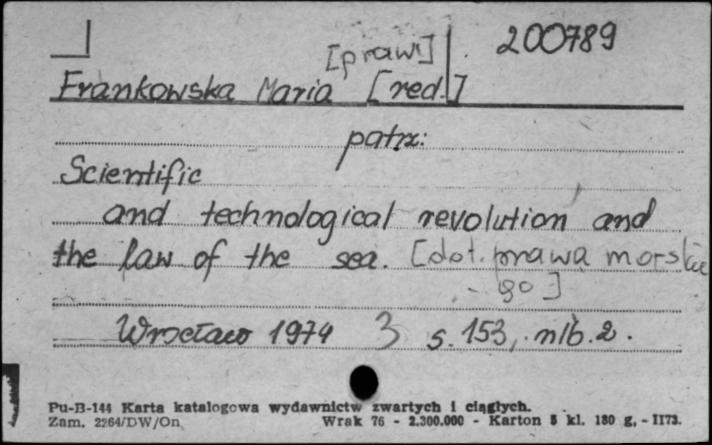 [praw] 200789
Frankowska Maria [red.]
patrz:
Scientific
and technological revolution and
the law of the sea. [dot. prawa morskie
- go]
Wrocław 1974 3 s. 153, nlb. 2.
Pu-B-144 Karta katalogowa wydawnictw zwartych i ciągłych.
Zam. 2264/DW/On Wrak 76 - 2.300.000 - Karton 5 kl. 180 g, - II73.